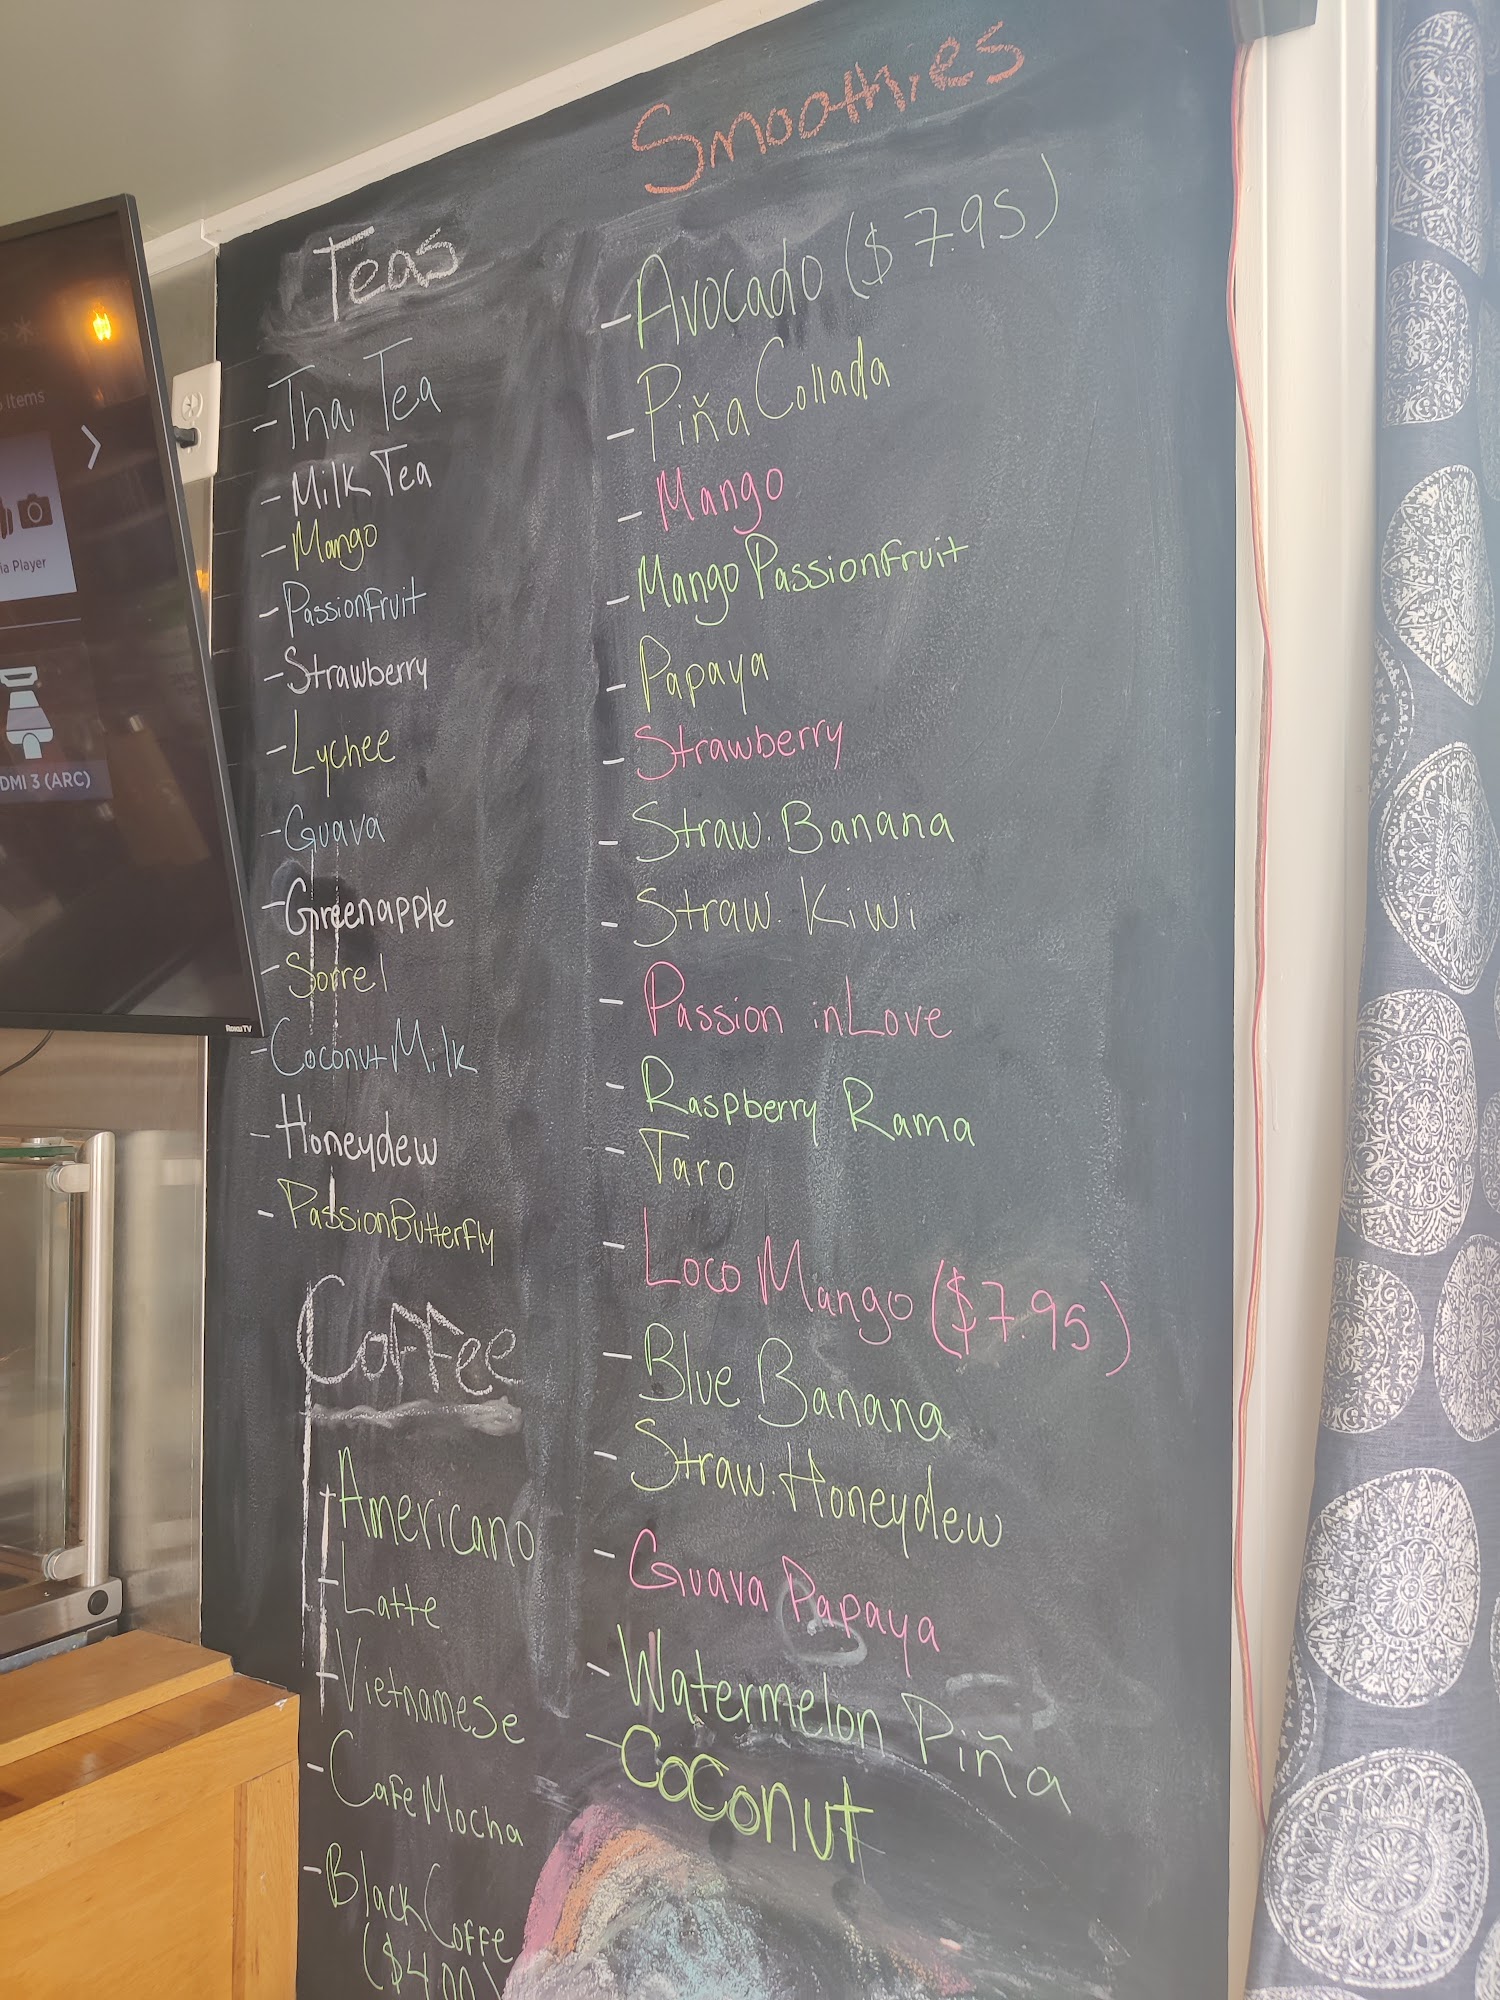 Smoothies
- Avocado ($7.95)
- Piña Collada
- Mango
- Mango Passionfruit
- Papaya
- Strawberry
- Straw. Banana
- Straw. Kiwi
- Passion inLove
- Raspberry Rama
- Taro
- Loco Mango ($7.95)
- Blue Banana
- Straw. Honeydew
- Guava Papaya
- Watermelon Piña
- Coconut
Teas
- Thai Tea
- Milk Tea
- Mango
- Passionfruit
- Strawberry
- Lychee
- Guava
- Greenapple
- Sorrel
- Coconut Milk
- Honeydew
- PassionButterfly
Coffee
- Americano
- Latte
- Vietnamese
- Cafe Mocha
- Black Coffe
($4.00)
Items
Player
3 (ARC)
Roku TV